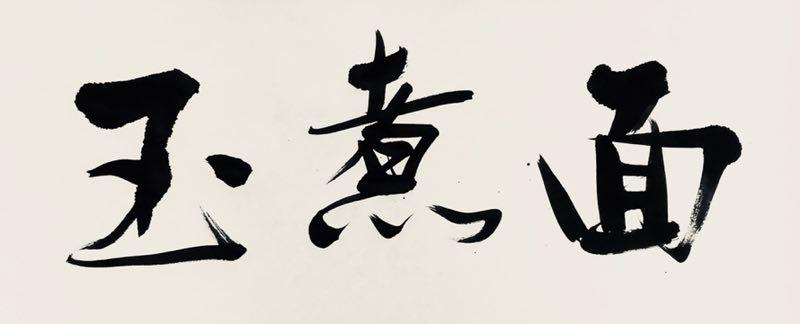 玉煮面